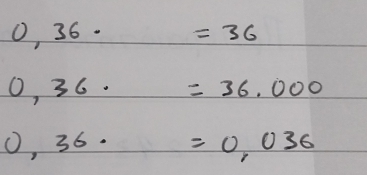 0,36 · = 36
0,36 · = 36.000
0,36 · = 0,036